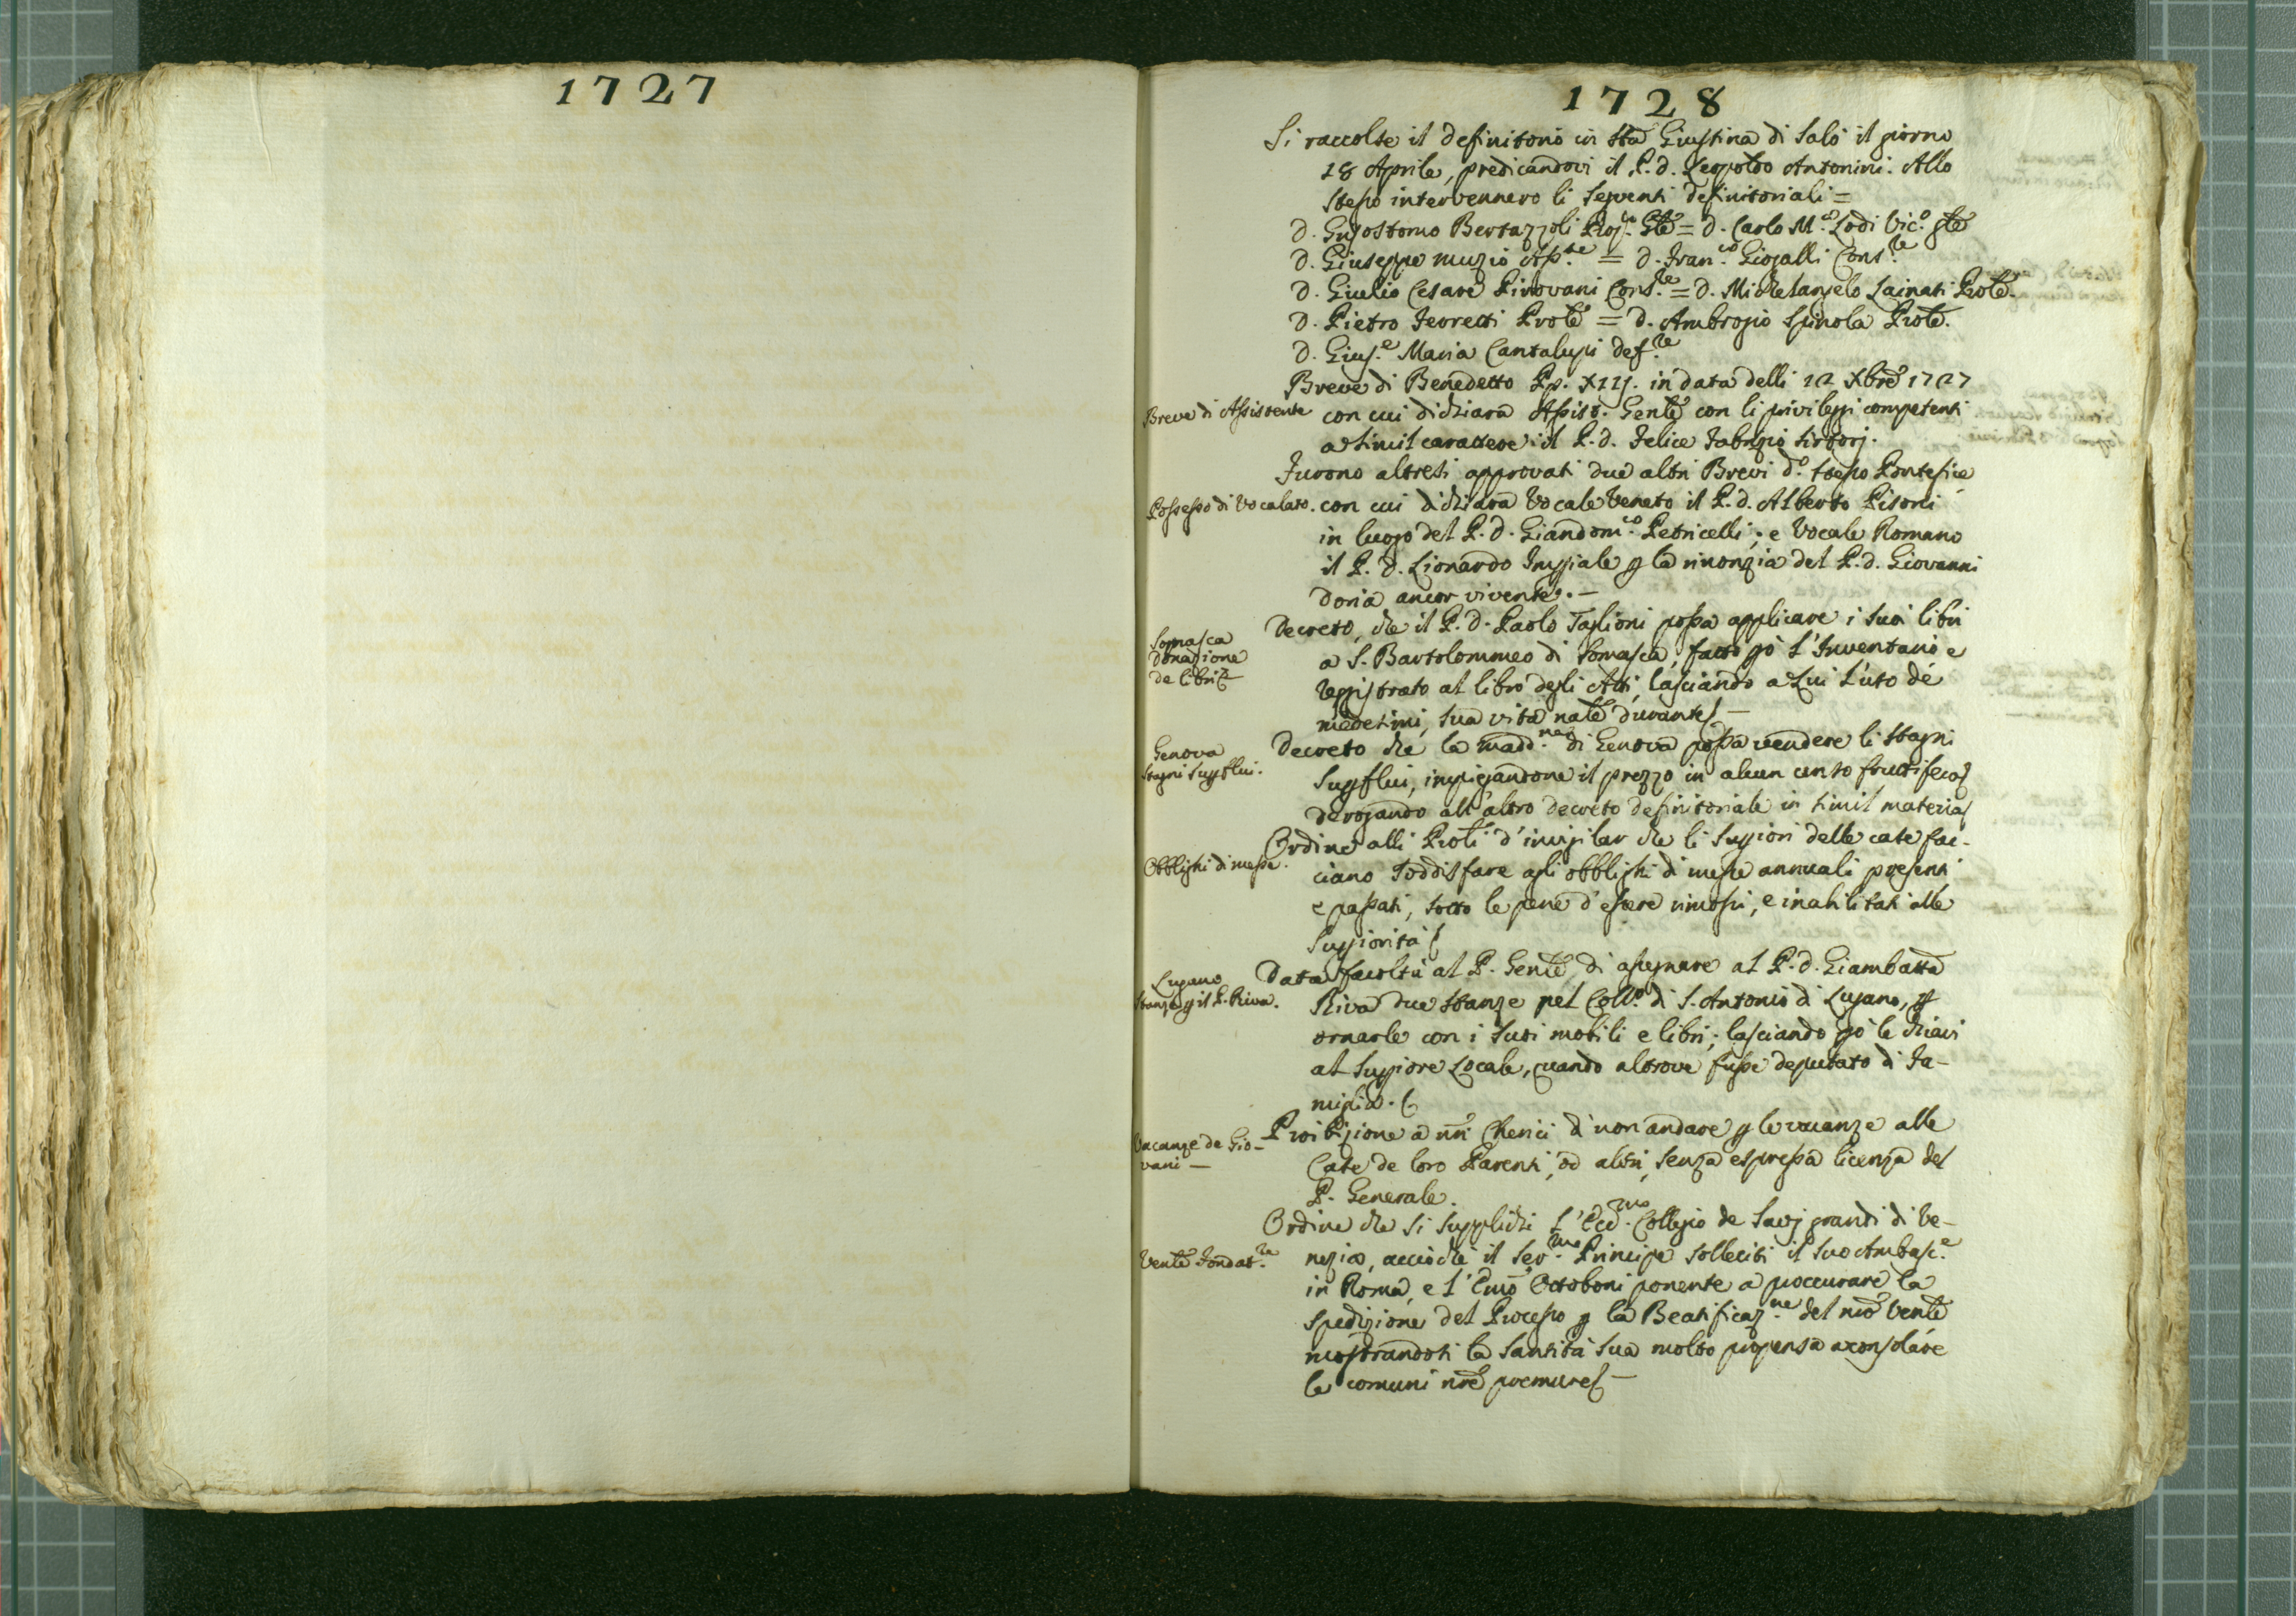 1727
1728
Si raccolse il definitorio in Sta Giustina di Salò il giorno
18 Aprile, predicandovi il P. d. Leopoldo Antonini. Allo
stesso intervennero li seguenti definitoriali =
D. Grisostomo Bertazzoli Prop.to Gle = D. Carlo M.a Lodi Vic.o gle
D. Giuseppe Muzio Ass.te = D. Fran.co Giogalli Cons.re
D. Giulio Cesare Pirovani Cons.re = D. Michelangelo Lainati Prole.
D. Pietro Feoretti Prole = D. Ambrogio Spinola Prole.
D. Gius.e Maria Cantalupi def.re
Breve di Benedetto Pp. XIIJ. in data delli 12 Xbre 1727
Breve di Assistente
con cui dichiara Assist. Gente con li privileggi competenti
a simil carattere il P. d. Felice Fabrizio Sirtorj.
Furono altresì approvati due altri Brevi d.o stesso Pontefice
Possesso di Vocalato.
con cui dichiara Vocale Veneto il P. d. Alberto Pisoni
in luogo del P. D. Giandom.co Petricelli; e Vocale Romano
il P. D. Lionardo Impiale p la rinonzia del P. d. Giovanni
Doria ancor vivente. —
Somasca
donazione
de libri
Decreto, che il P. D. Paolo Taglioni possa applicare i suoi libri
a S. Bartolommeo di Somasca, fatto pò l'Inventario e
reggistrato al libro degli Atti, lasciando a Lui l'uso dé
medesimi, sua vita nale durante. —
Genova
Stagni Supflui.
Decreto che la Madd.na di Genova possa vendere li stagni
Supflui, impiegandone il prezzo in alcun censo fruttifero
derogando all'altro decreto definitoriale in simil materia
Obblighi di messe.
Ordine alli Proli d'invigilar che li Supiori delle case fac-
ciano soddisfare agli obblighi di messe annuali presenti
e passati, sotto le pene d'essere rimossi, e inabilitati alle
Supiorità
Lugano
Stanze p il P. Riva.
Data facoltà al P. Genle, di assegnare al P. d. Giambatta
Riva due stanze nel Coll.o di S. Antonio di Lugano, p
ornarle con i suoi mobili e libri; lasciando pò le chiavi
al Supiore Locale, quando altrove fusse deputato di Fa-
miglia.
Vacanze de Gio-
vani —
Proibizione a nri Cherici di non andare p le vacanze alle
Case de loro Parenti, od altri, senza espressa licenza del
P. Generale.
Ordine che si supplichi l'Ecc.mo Collegio de Savj grandi di Ve-
Venle Fondat.re
nezia, acciochè il Ser.mo Principe solleciti il suo Ambasc.e
in Roma, e l'Emo Ottoboni ponente a proccurare la
spedizione del Processo p la Beatificaz.ne del nro Venle
mostrandosi la Santità Sua molto propensa a consolare
le comuni nre premure —